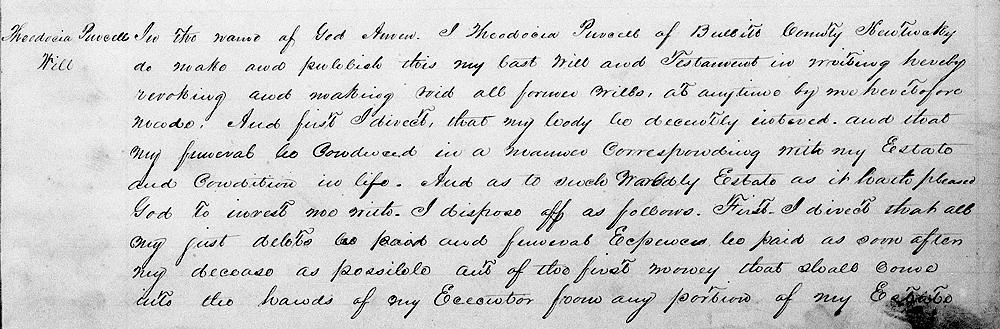 Theodocia Purcells In the name of God Amen. I Theodocia Purcell of Bullitt County Kentucky
Will do make and publish this my last Will and Testament in writing hereby
revoking and making void all former wills, at anytime by me heretofore
made. And first I direct, that my body be decently intered. and that
my funeral be Conduced in a manner Corresponding with my Estate
and Condition in life. And as to such Worldly Estate as it hath pleased
God to invest me with. I dispose off as follows. First. I direct that all
my just debts be paid and funeral Ecpences be paid as soon after
my decease as possible out of the first money that shall come
into the hands of my Ececutor from any portion of my Estate